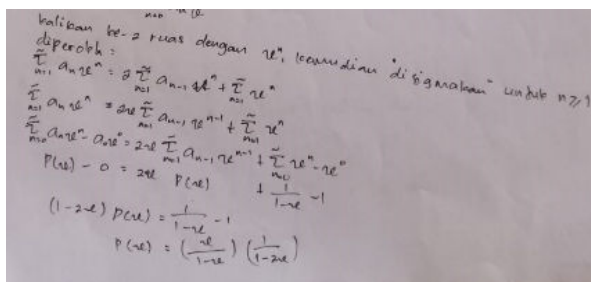 kalikan ke-2 ruas dengan xⁿ, kemudian "disigmakan" untuk n≥1
diperoleh :
∞∑n=1 aₙxⁿ = 2 ∞∑n=1 aₙ₋₁ xⁿ + ∞∑n=1 xⁿ
∞∑n=1 aₙxⁿ = 2x ∞∑n=1 aₙ₋₁ xⁿ⁻¹ + ∞∑n=1 xⁿ
∞∑n=0 aₙxⁿ - a₀x⁰ = 2x ∞∑n=1 aₙ₋₁ xⁿ⁻¹ + ∞∑n=0 xⁿ - x⁰
P(x) - 0 = 2x P(x) + 1/(1-x) - 1
(1-2x) P(x) = 1/(1-x) - 1
P(x) = (x/(1-x)) (1/(1-2x))